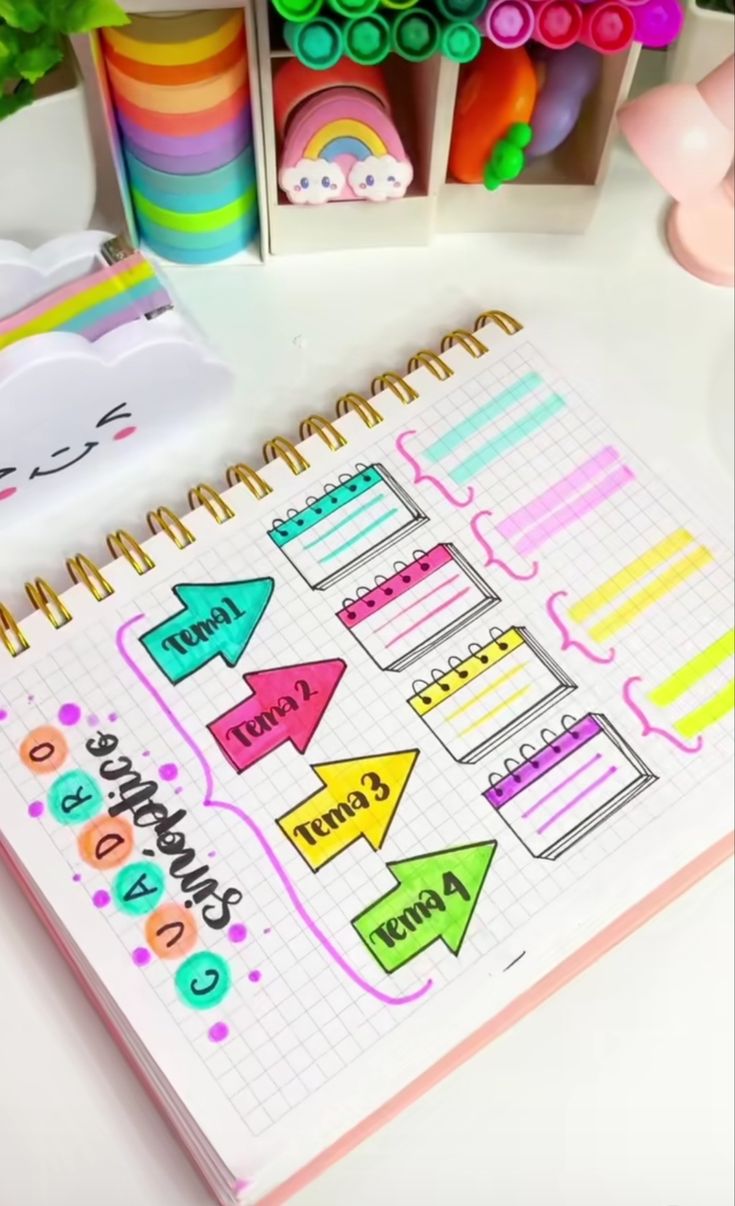 CUADRO
Sinóptico
Tema 1
Tema 2
Tema 3
Tema 4